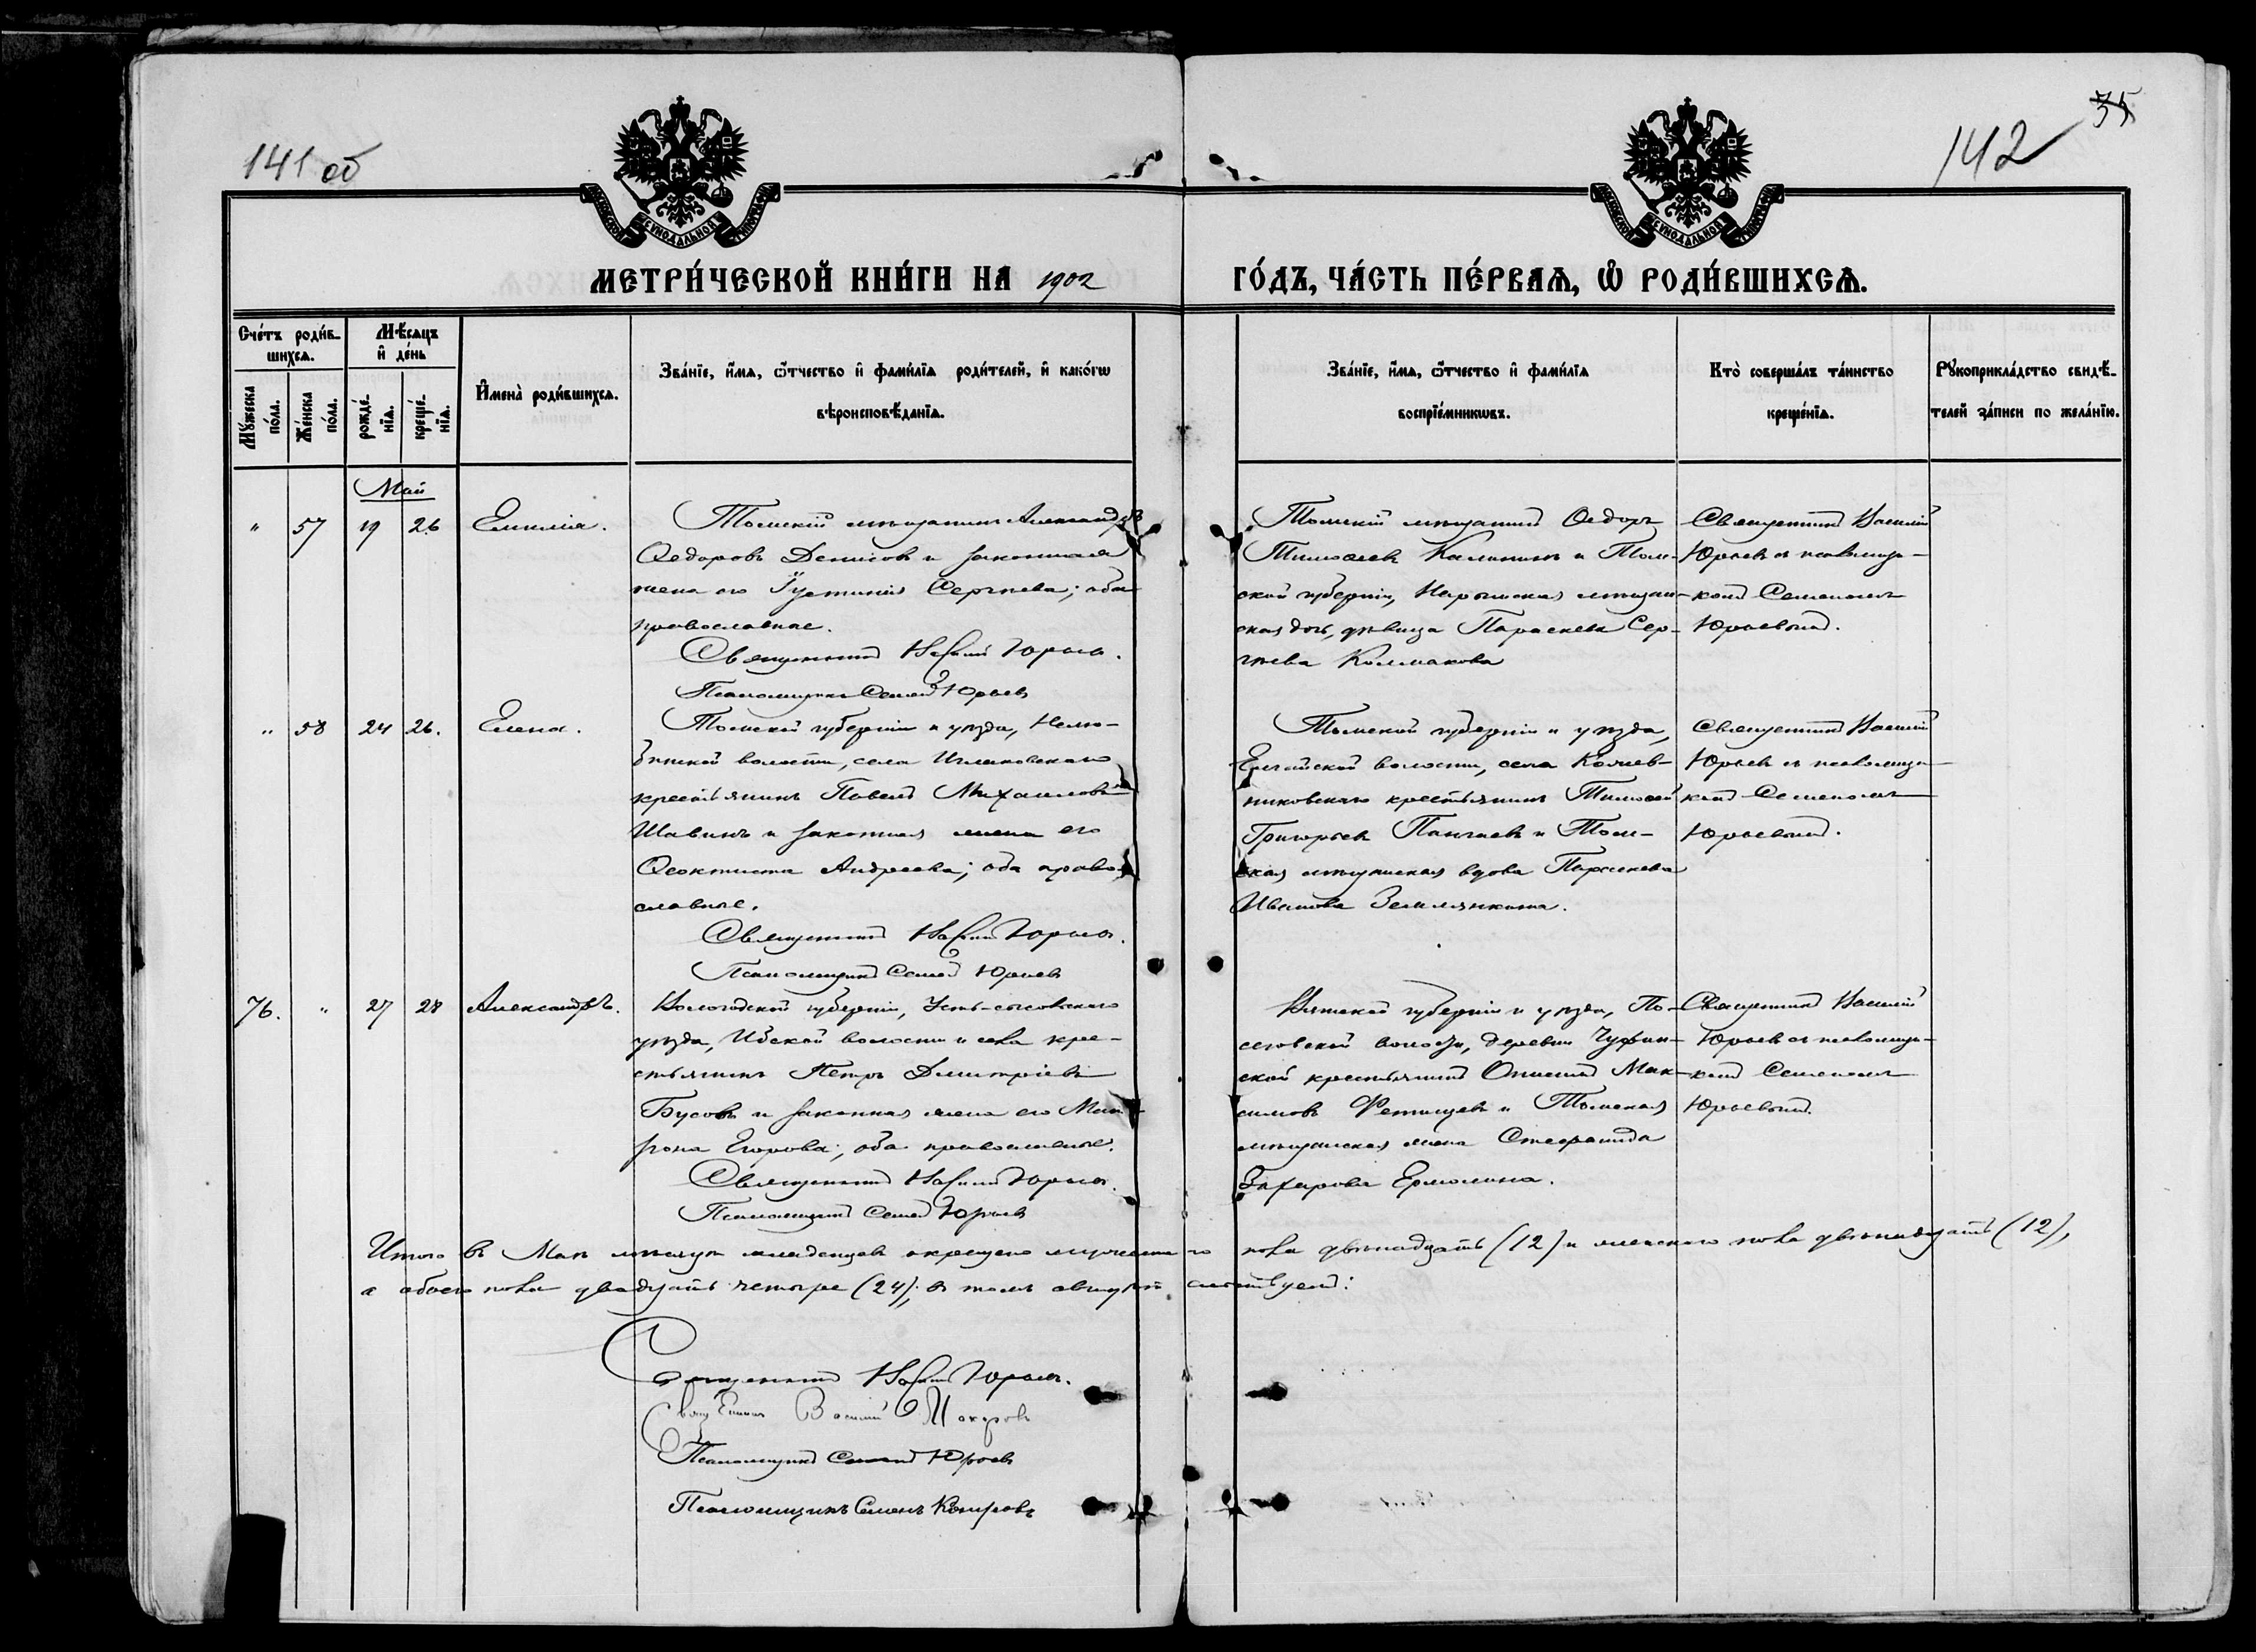 141 об
142
35
МЕТРИ́ЧЕСКОЙ КНИ́ГИ НА 1902
ГО́ДЪ, ЧА́СТЬ ПЕ́РВАѦ, Ѡ РОДИ́ВШИХСѦ.
Сче́тъ роди́в-
шихсѧ.
Мꙋ́жеска по́ла.
Же́нска по́ла.
Мѣ́сѧцъ и де́нь
рожде́-нїѧ.
креще́-нїѧ.
Имена̀ роди́вшихсѧ.
Зва́нїе, и́мѧ, ѻ́тчество и фами́лїѧ роди́телей, и како́гѡ
вѣроисповѣ́данїѧ.
Зва́нїе, и́мѧ, ѻ́тчество и фами́лїѧ
воспрїе́мникѡвъ.
Кто̀ соверша́лъ та́инство
креще́нїѧ.
Рꙋкоприкла́дство свидѣ́-
телей за́писи по жела́нїю.
Май
" 57 19 26 Емилія.
Томскій мѣщанинъ Александръ
Ѳедоровъ Денисовъ и законная
жена его Іустинія Сергѣева; оба
православные.
Священникъ Василій Юрьевъ.
Псаломщикъ Семенъ Юрьевъ
Томскій мѣщанинъ Ѳедоръ
Тимоѳеевъ Калининъ и Том-
ской губерніи, Нарымская мѣщан-
ская дочь, дѣвица Параскева Сер-
гѣева Колмакова
Священникъ Василій
Юрьевъ съ псаломщи-
комъ Семеномъ
Юрьевымъ.
" 58 24 26. Елена.
Томской губерніи и уѣзда, Нелю-
бинской волости, села
крестьянинъ Павелъ Михаиловъ
Шавинъ и законная жена его
Ѳеоктиста Андреева; оба право-
славные.
Священникъ Василій Юрьевъ.
Псаломщикъ Семенъ Юрьевъ
Томской губерніи и уѣзда,
Елгайской волости, села Кожев-
никовскаго крестьянинъ Тимоѳей
Григорьевъ и Том-
ская мѣщанская вдова Параскева
Иванова Землянкина.
Священникъ Василій
Юрьевъ съ псаломщи-
комъ Семеномъ
Юрьевымъ.
76. " 27 28 Александръ.
Вологодской губерніи, Усть-сысольскаго
уѣзда, Ибской волости и села кре-
стьянинъ Петръ Димитріевъ
Бусовъ и законная жена его Мат-
рона Егорова; оба православные.
Священникъ Василій Юрьевъ.
Псаломщикъ Семенъ Юрьевъ
Вятской губерніи и уѣзда, По-
волости, деревни
ской крестьянинъ Мак-
симовъ и Томская
мѣщанская жена Стефанида
Захарова Ермолина.
Священникъ Василій
Юрьевъ съ псаломщи-
комъ Семеномъ
Юрьевымъ.
Итого въ Маѣ мѣсяцѣ младенцевъ окрещено мужескаго пола двѣнадцать (12) и женскаго пола двѣнадцать (12),
а обоего пола двадцать четыре (24); въ томъ свидѣтельствуемъ:
Священникъ Василій Юрьевъ.
Священникъ Василій
Псаломщикъ Семенъ Юрьевъ
Псаломщикъ Семенъ